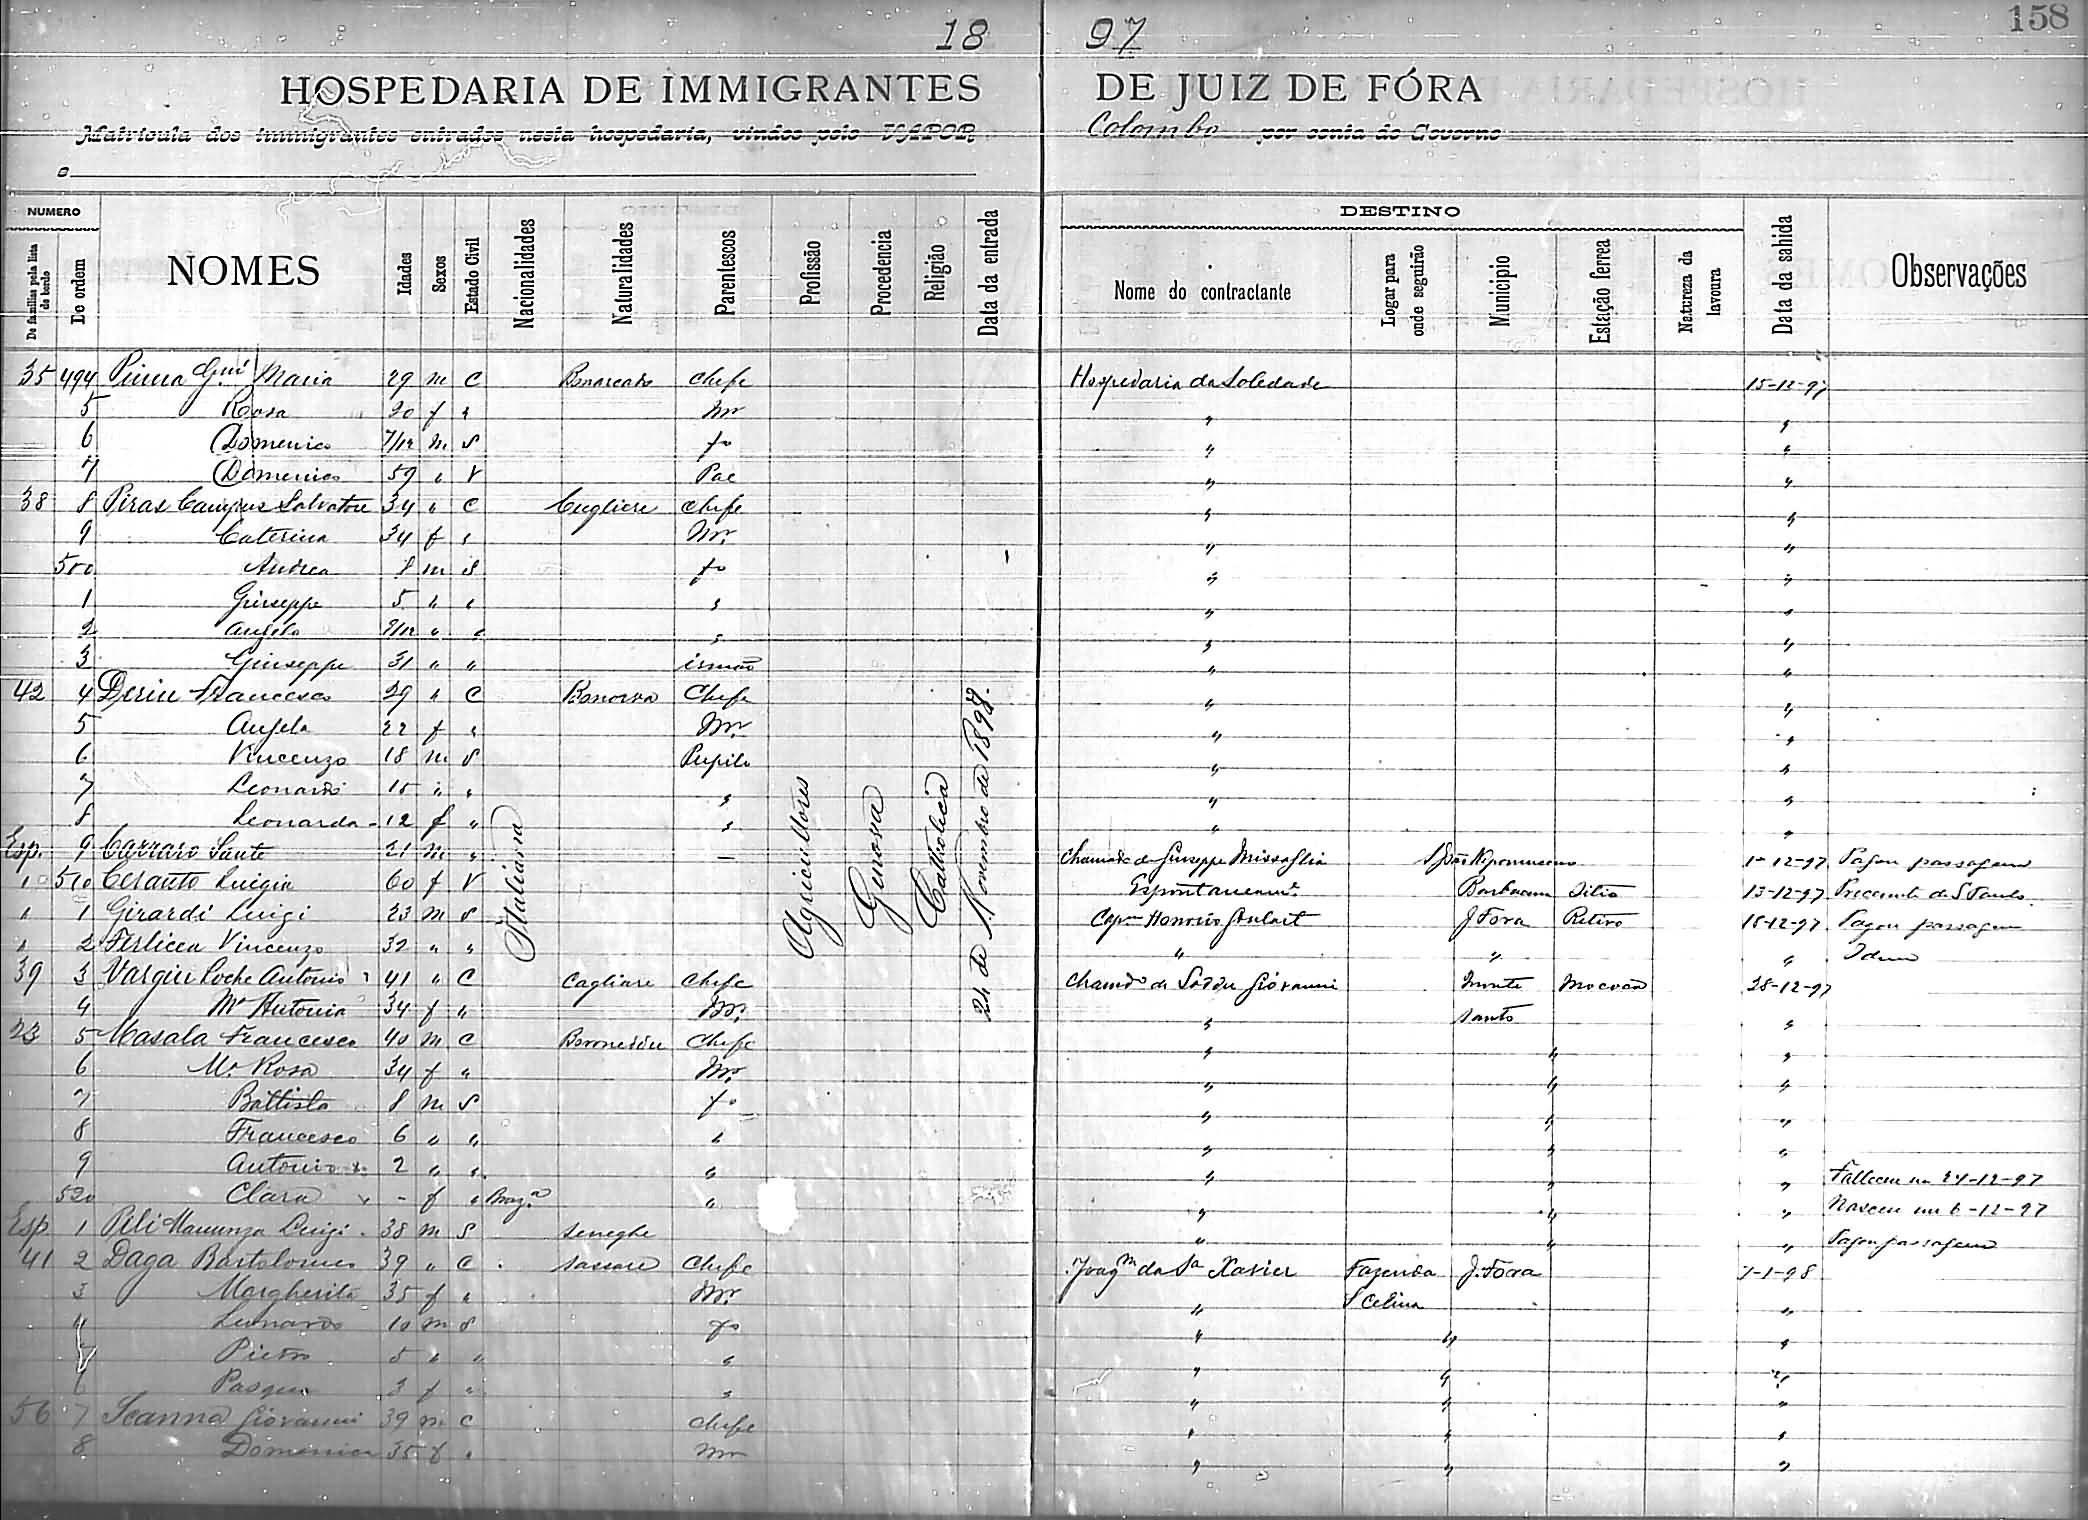 158
18 97
HOSPEDARIA DE IMMIGRANTES DE JUIZ DE FÓRA
Matricula dos immigrantes entrados nesta hospedaria, vindos pelo VAPOR Colombo por conta do Governo
e
NUMERO
De familias pela lista de bordo
De ordem
NOMES
Idades
Sexos
Estado Civil
Nacionalidades
Naturalidades
Parentescos
Profissão
Procedencia
Religião
Data da entrada
DESTINO
Nome do contractante
Logar para onde seguirão
Municipio
Estação ferrea
Natureza da lavoura
Data da sahida
Observações
Italiana
Agricultores
Genova
Catholica
24 de Novembro de 1897.
35 494 Pinna Gni Maria 29 m C Bonarcado Chefe Hospedaria da Soledade 15-12-97
5 Rosa 20 f " Mr " "
6 Domenico 7/12 m S fo " "
7 Domenico 59 " V Pae " "
38 8 Piras Campus Salvatore 34 " C Cugliere Chefe " "
9 Caterina 34 f " Mr. " "
500 Andrea 8 m S fo " "
1 Giuseppe 5 " " " " "
2 Angelo 9/12 " " " " "
3 Giuseppe 31 " " irmão " "
42 4 Deriu Francesco 29 " C Bonorva Chefe " "
5 Angela 22 f " Mr. " "
6 Vincenzo 18 m S Pupilo " "
7 Leonardo 15 " " " " "
8 Leonarda 12 f " " " "
Esp. 9 Carraro Sante 21 m " — Chamado de Giuseppe Missaglia S João Nepomuceno 1-12-97 Pagou passagem
" 510 Cesanto Luigia 60 f V Espontaneamte Barbacena Sitio 13-12-97 Procente de S Paulo.
" 1 Girardi Luigi 23 m S Capm Honorio Goulart J Fora Retiro 15-12-97 Pagou passagem
" 2 Ferlicca Vincenzo 32 " " " " " Idem
39 3 Vargiu Loche Antonio 41 " C Cagliare Chefe Chamdo de Soddu Giovanni Monte Mococa 28-12-97
4 Ma Antonia 34 f " Mr. " Santo "
23 5 Masala Francesco 40 m C Boroneddu Chefe " " "
6 Ma Rosa 34 f " Mr. " " "
7 Battista 8 m S fo " " "
8 Francesco 6 " " " " " "
9 Antonio x 2 " " " " " " Falleceu em 24-12-97
520 Clara x - f " Braza " " " " Nasceu em 6-12-97
Esp 1 Pili Manunza Luigi 38 m S Seneghe " " " Pagou passagem
41 2 Daga Bartolomeo 39 " C Sassare Chefe Joaqm da Sa Xavier Fazenda J. Fora 7-1-98
3 Margherita 35 f " Mr. " S Celina "
4 Leonardo 10 m S fo " " "
5 Pietro 5 " " " " " "
6 Pasqua 3 f " " " " "
56 7 Scanna Giovanni 39 m C Chefe " " "
8 Domenica 35 f " Mr " " "